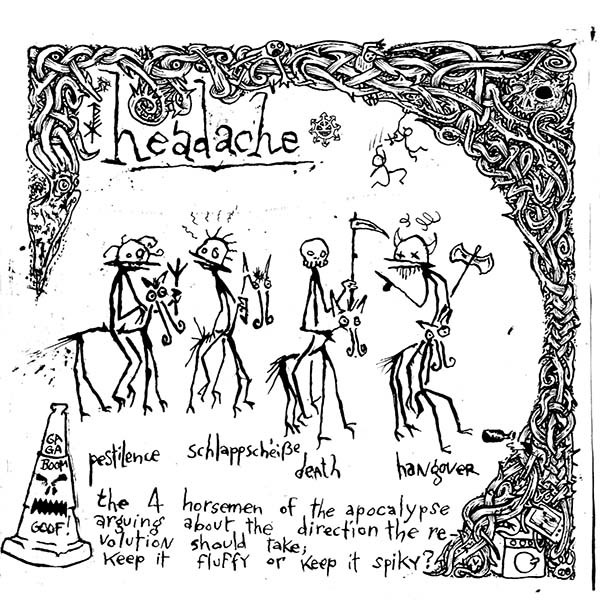 headache
pestilence
schlappscheiße
death
hangover
GA
GA
BOOM
GOOF!
the 4 horsemen of the apocalypse
arguing about the direction the re-
volution should take;
keep it fluffy or keep it spiky?